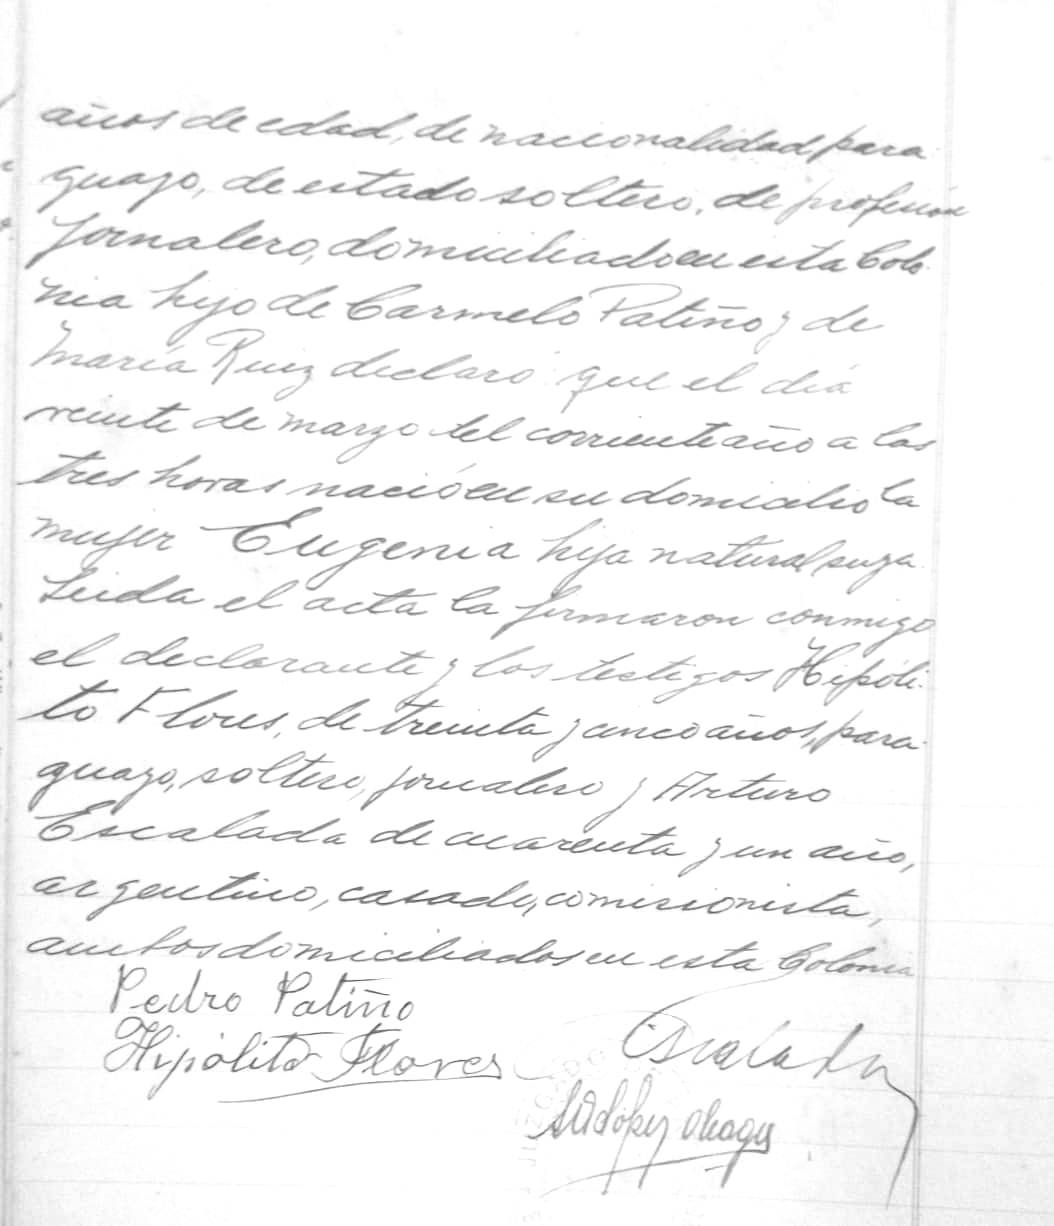 años de edad, de nacionalidad para-
guayo, de estado soltero, de profesión
jornalero, domiciliado en esta Colo-
nia hijo de Carmelo Patiño y de
María Ruiz declaró que el día
veinte de marzo del corriente año a las
tres horas nació en su domicilio la
mujer Eugenia hija natural suya.
Leida el acta la firmaron conmigo
el declarante y los testigos Hipóli-
to Flores, de treinta y cinco años, para-
guayo, soltero, jornalero y Arturo
Escalada de cuarenta y un año,
argentino, casado, comisionista,
ambos domiciliados en esta Colonia
Pedro Patiño
Hipólito Flores
Escalada